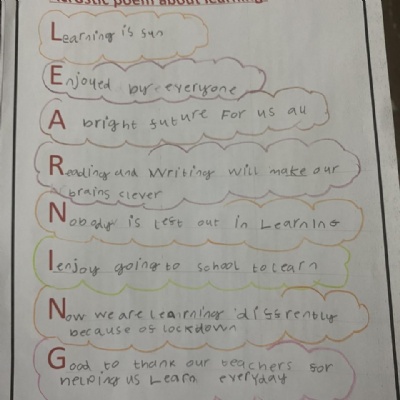 Acrostic poem about learning
Learning is fun
Enjoyed by everyone
A bright future For us all
Reading and Writing will make our
brains clever
Nobody is left out in Learning
I enjoy going to school to learn
Now we are learning differently
because of lockdown
Good to thank our teachers for
helping us Learn everyday